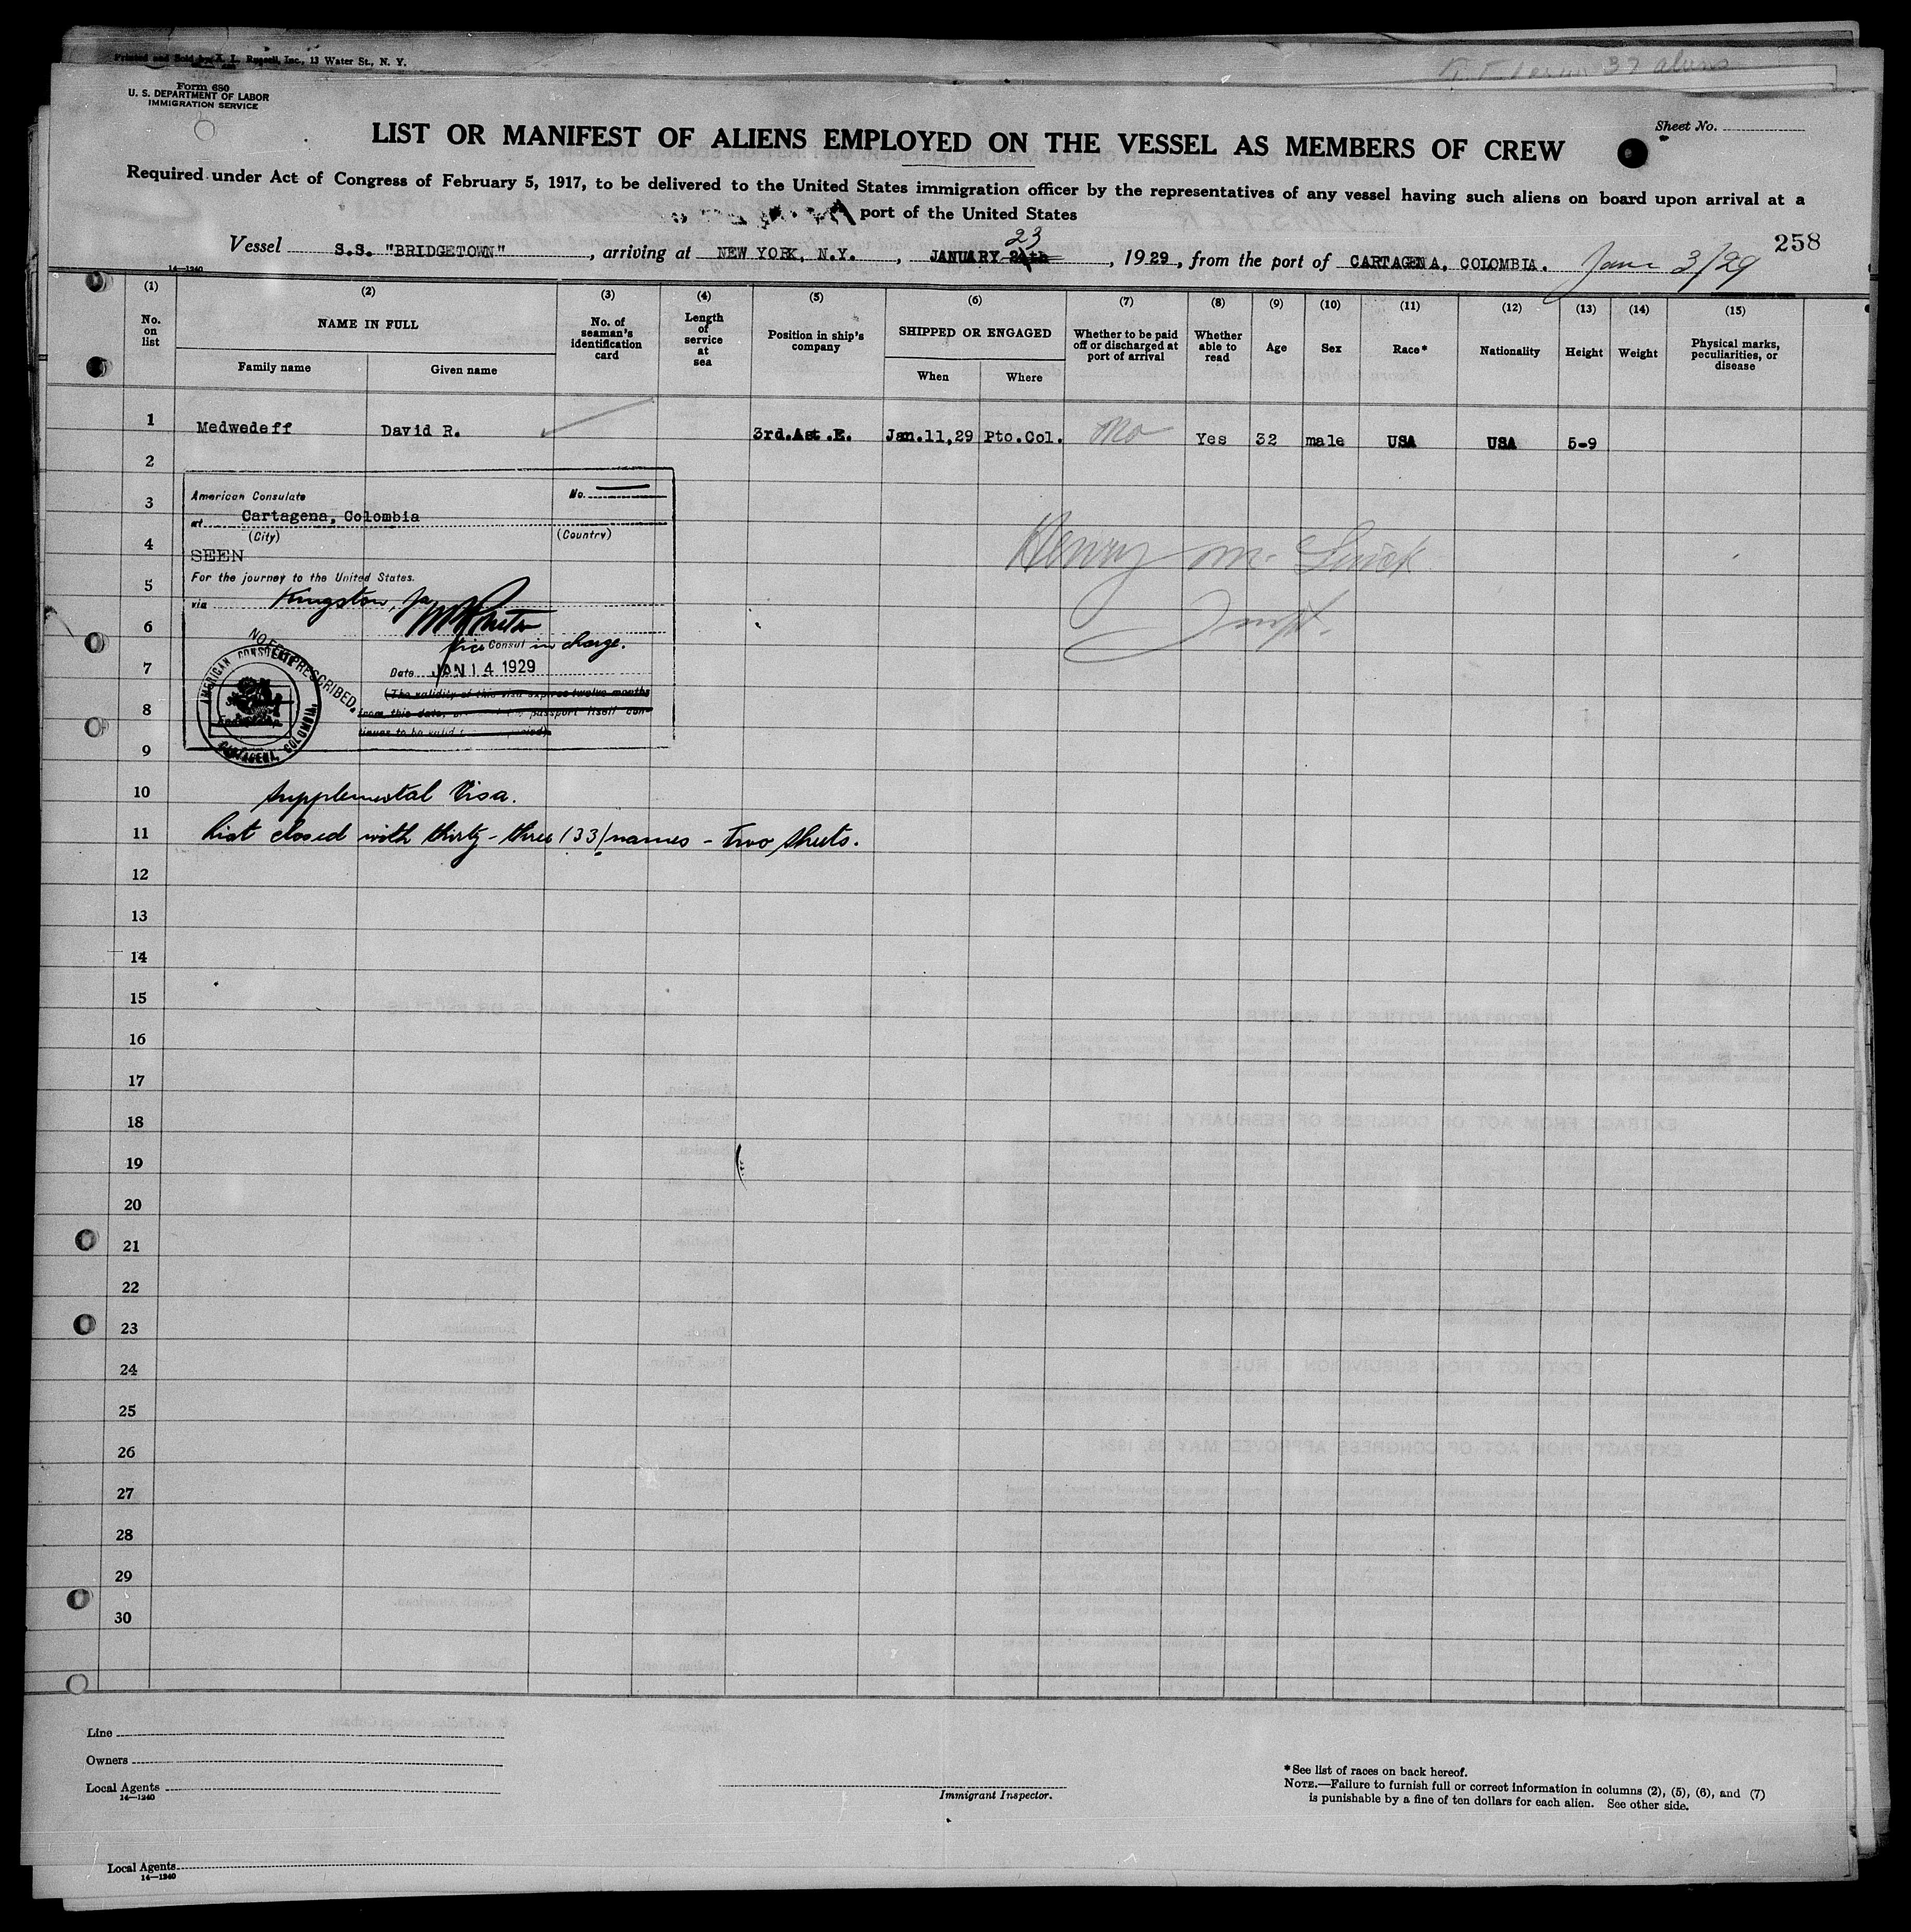 Printed and Sold by A. L. Russell, Inc., 13 Water St., N. Y.
37 aliens
Form 680
U. S. DEPARTMENT OF LABOR
IMMIGRATION SERVICE
Sheet No.
LIST OR MANIFEST OF ALIENS EMPLOYED ON THE VESSEL AS MEMBERS OF CREW
Required under Act of Congress of February 5, 1917, to be delivered to the United States immigration officer by the representatives of any vessel having such aliens on board upon arrival at a
port of the United States
258
23
Vessel S.S. "BRIDGETOWN", arriving at NEW YORK, N.Y., JANUARY 24th, 1929, from the port of CARTAGENA, COLOMBIA. 3/29
14—1240
(1) (2) (3) (4) (5) (6) (7) (8) (9) (10) (11) (12) (13) (14) (15)
No. on list
NAME IN FULL
Family name
Given name
No. of seaman's identification card
Length of service at sea
Position in ship's company
SHIPPED OR ENGAGED
When
Where
Whether to be paid off or discharged at port of arrival
Whether able to read
Age
Sex
Race*
Nationality
Height
Weight
Physical marks, peculiarities, or disease
1 Medwedeff David R. 3rd.Ast.E. Jan.11,29 Pto.Col. No Yes 32 male USA USA 5-9
2
3
4
5
6
7
8
9
American Consulate No.
at Cartagena, Colombia
(City) (Country)
SEEN
For the journey to the United States.
via Kingston, Ja
Vice Consul in charge.
Date JAN 14 1929
(The validity of this visa expires twelve months
from this date, passport itself con-
tinues to be valid period)
NO FEE PRESCRIBED.
AMERICAN CONSULATE
CARTAGENA, COLOMBIA.
Henry M.
Inspt.
10 Supplemental Visa.
11 List closed with thirty-three (33) names - two sheets.
12
13
14
15
16
17
18
19
20
21
22
23
24
25
26
27
28
29
30
Line
Owners
Local Agents
14—1240
Immigrant Inspector.
*See list of races on back hereof.
NOTE.—Failure to furnish full or correct information in columns (2), (5), (6), and (7)
is punishable by a fine of ten dollars for each alien. See other side.
Local Agents
14—1240